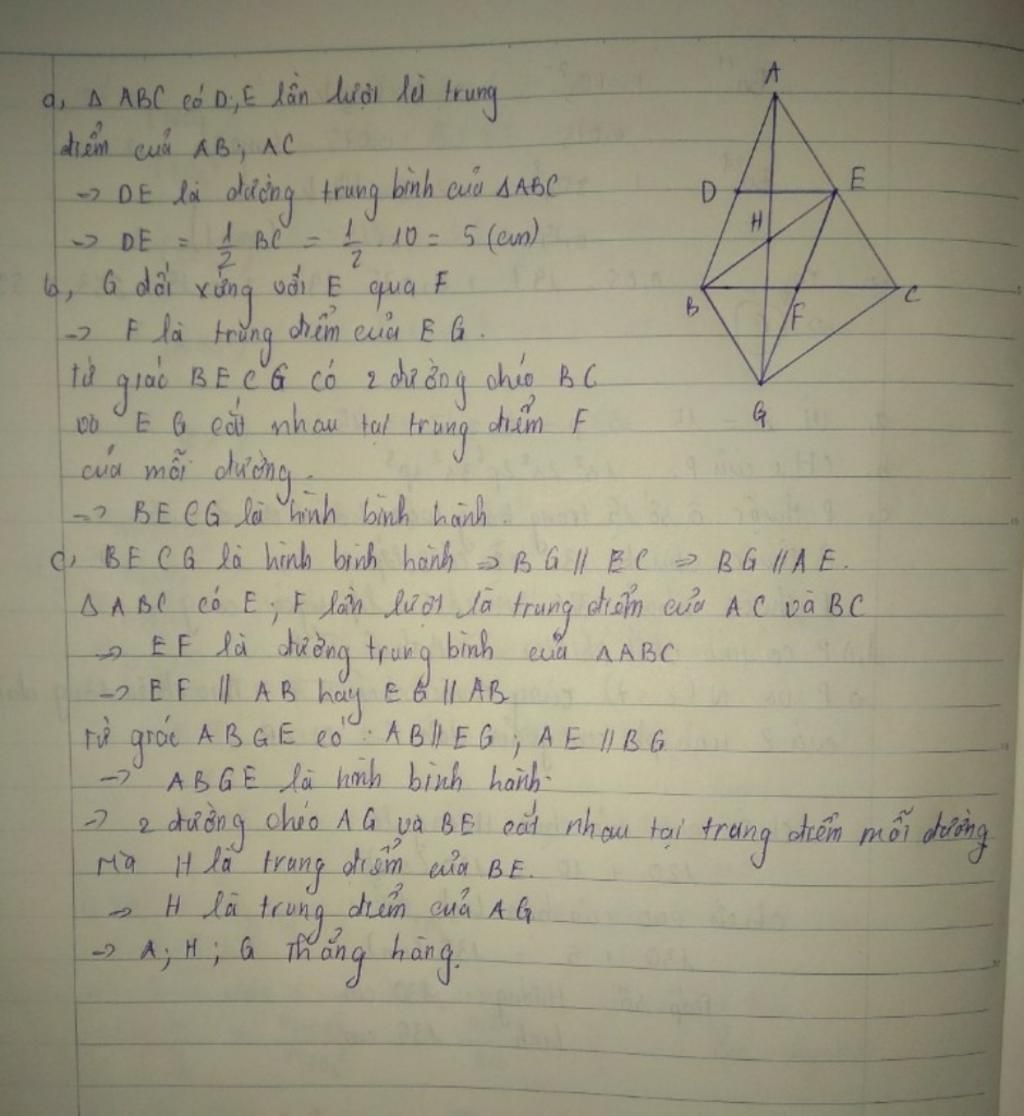 a, Δ ABC có D; E lần lượt là trung
điểm của AB; AC
-> DE là đường trung bình của ΔABC
-> DE = 1/2 BC = 1/2 . 10 = 5 (cm)
b, G đối xứng với E qua F
-> F là trung điểm của EG.
tứ giác BECG có 2 đường chéo BC
và EG cắt nhau tại trung điểm F
của mỗi đường.
-> BECG là hình bình hành
c, BECG là hình bình hành => BG // EC => BG // AE.
Δ ABC có E; F lần lượt là trung điểm của AC và BC
-> EF là đường trung bình của ΔABC
-> EF // AB hay EG // AB
Tứ giác ABGE có: AB // EG; AE // BG
-> ABGE là hình bình hành.
-> 2 đường chéo AG và BE cắt nhau tại trung điểm mỗi đường
Mà H là trung điểm của BE.
-> H là trung điểm của AG
-> A; H; G thẳng hàng.
A
D
E
H
B
F
C
G